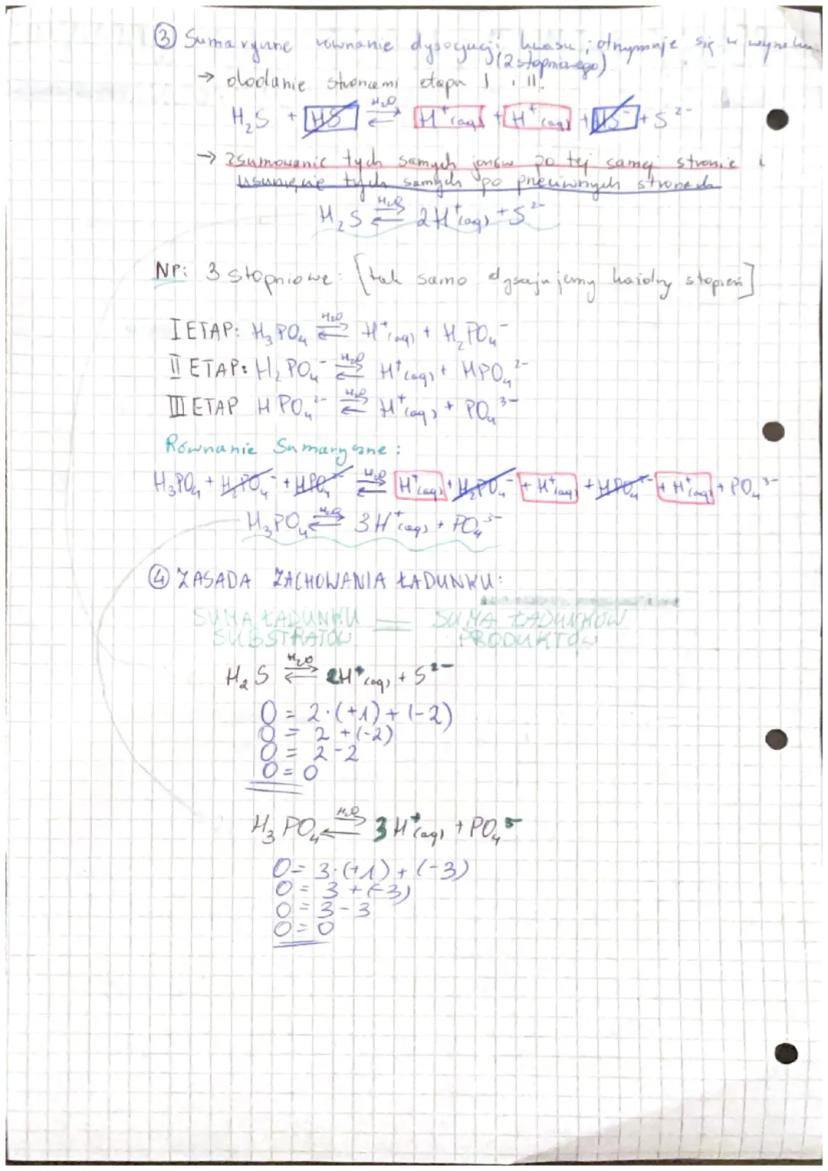 ③ Sumaryczne równanie dysocjacji kwasu (2 stopniowego) otrzymuje się w wyniku
→ dodanie stronami etapu I i II.
H₂S + HS⁻ ⇄ (H₂O) H⁺(aq) + H⁺(aq) + HS⁻ + S²⁻
→ zsumowanie tych samych jonów po tej samej stronie i
usunięcie tych samych po przeciwnych stronach
H₂S ⇄ (H₂O) 2H⁺(aq) + S²⁻
NP: 3 stopniowe: [tak samo dysocjujemy każdy stopień]
I ETAP: H₃PO₄ ⇄ (H₂O) H⁺(aq) + H₂PO₄⁻
II ETAP: H₂PO₄⁻ ⇄ (H₂O) H⁺(aq) + HPO₄²⁻
III ETAP HPO₄²⁻ ⇄ (H₂O) H⁺(aq) + PO₄³⁻
Równanie Sumaryczne:
H₃PO₄ + H₂PO₄⁻ + HPO₄²⁻ ⇄ (H₂O) H⁺(aq) + H₂PO₄⁻ + H⁺(aq) + HPO₄²⁻ + H⁺(aq) + PO₄³⁻
H₃PO₄ ⇄ (H₂O) 3H⁺(aq) + PO₄³⁻
④ ZASADA ZACHOWANIA ŁADUNKU:
SUMA ŁADUNKU SUBSTRATÓW = SUMA ŁADUNKÓW PRODUKTÓW
H₂S ⇄ (H₂O) 2H⁺(aq) + S²⁻
0 = 2·(+1) + (-2)
0 = 2 + (-2)
0 = 2 - 2
0 = 0
H₃PO₄ ⇄ (H₂O) 3H⁺(aq) + PO₄³⁻
0 = 3·(+1) + (-3)
0 = 3 + (-3)
0 = 3 - 3
0 = 0